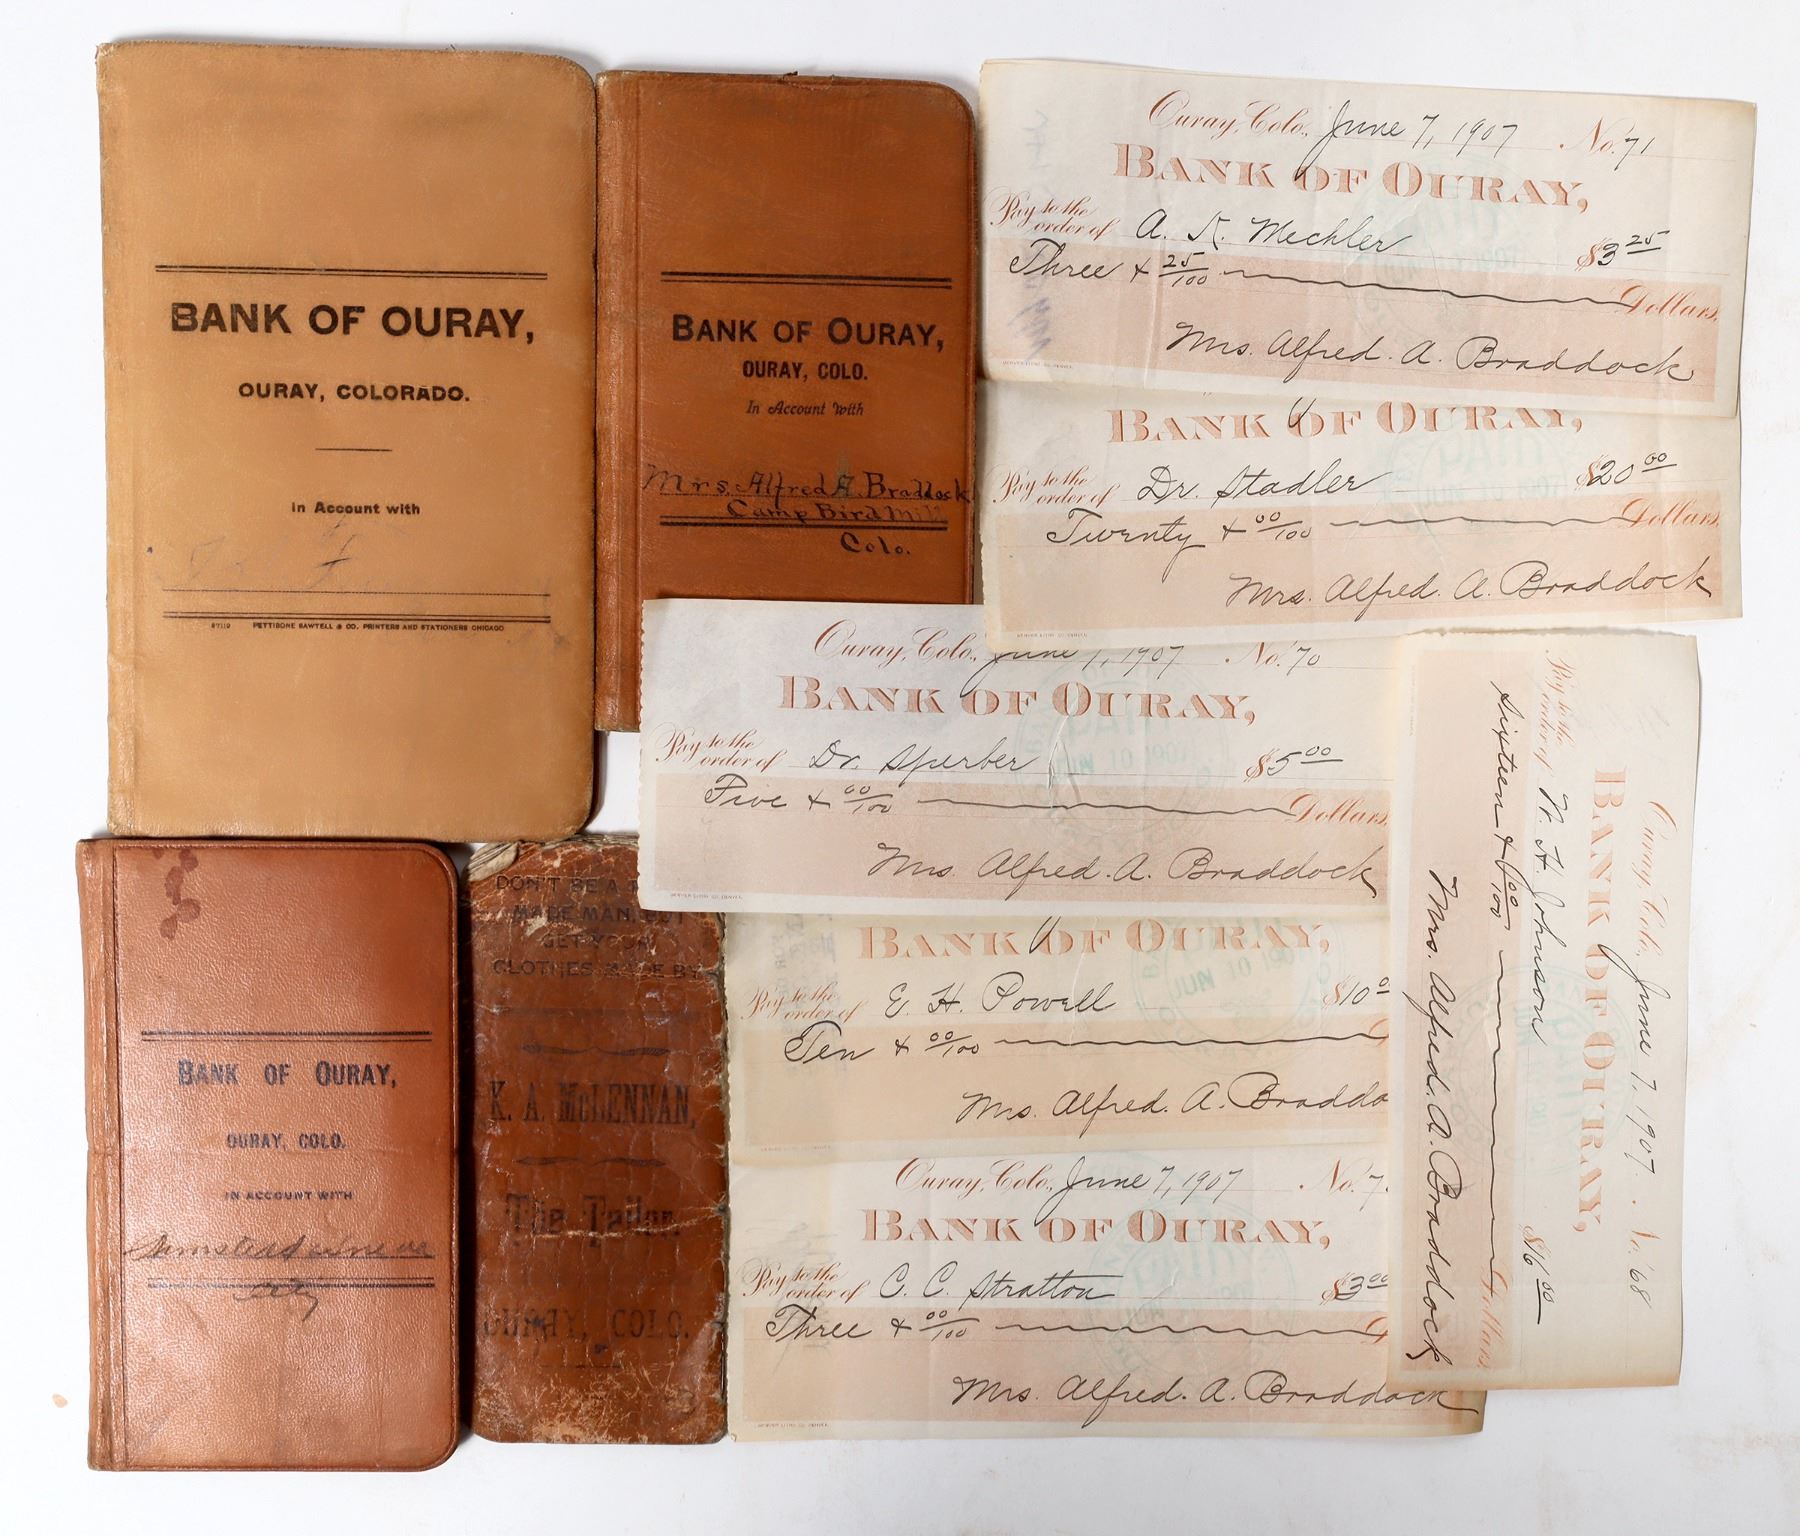 BANK OF OURAY,
OURAY, COLORADO.
In Account with
87119 PETTIBONE SAWTELL & CO. PRINTERS AND STATIONERS CHICAGO
BANK OF OURAY,
OURAY, COLO.
In Account With
Mrs. Alfred A. Braddock
Camp Bird Mill
Colo.
BANK OF OURAY,
OURAY, COLO.
IN ACCOUNT WITH
DON'T BE A
MADE MAN, BUT
GET YOUR
CLOTHES MADE BY
K. A. McLENNAN,
The Tailor
OURAY, COLO.
Ouray, Colo., June 7, 1907 No. 71
BANK OF OURAY,
Pay to the order of A. K. Mechler $3 25
Three & 25/100 Dollars.
Mrs. Alfred. A. Braddock
DENVER LITHO. CO. DENVER.
BANK OF OURAY,
Pay to the order of Dr. Stadler $20 00
Twenty & 00/100 Dollars.
Mrs. Alfred. A. Braddock
DENVER LITHO. CO. DENVER.
Ouray, Colo., June 7, 1907 No. 70
BANK OF OURAY,
Pay to the order of Dr. Sperber $5 00
Five & 00/100 Dollars.
Mrs. Alfred. A. Braddock
DENVER LITHO. CO. DENVER.
JUN 10 1907
BANK OF OURAY,
Pay to the order of E. H. Powell $10 0
Ten & 00/100 D
Mrs. Alfred. A. Braddo
JUN 10 190
Ouray, Colo., June 7, 1907 No. 7
BANK OF OURAY,
Pay to the order of C. C. Stratton $3 00
Three & 00/100 D
Mrs. Alfred. A. Braddock
DENVER LITHO. CO. DENVER.
Ouray, Colo., June 7, 1907. No. 68
BANK OF OURAY,
Pay to the order of N. H. Johnson $16 00
Sixteen & 00/100 Dollars
Mrs. Alfred. A. Braddock